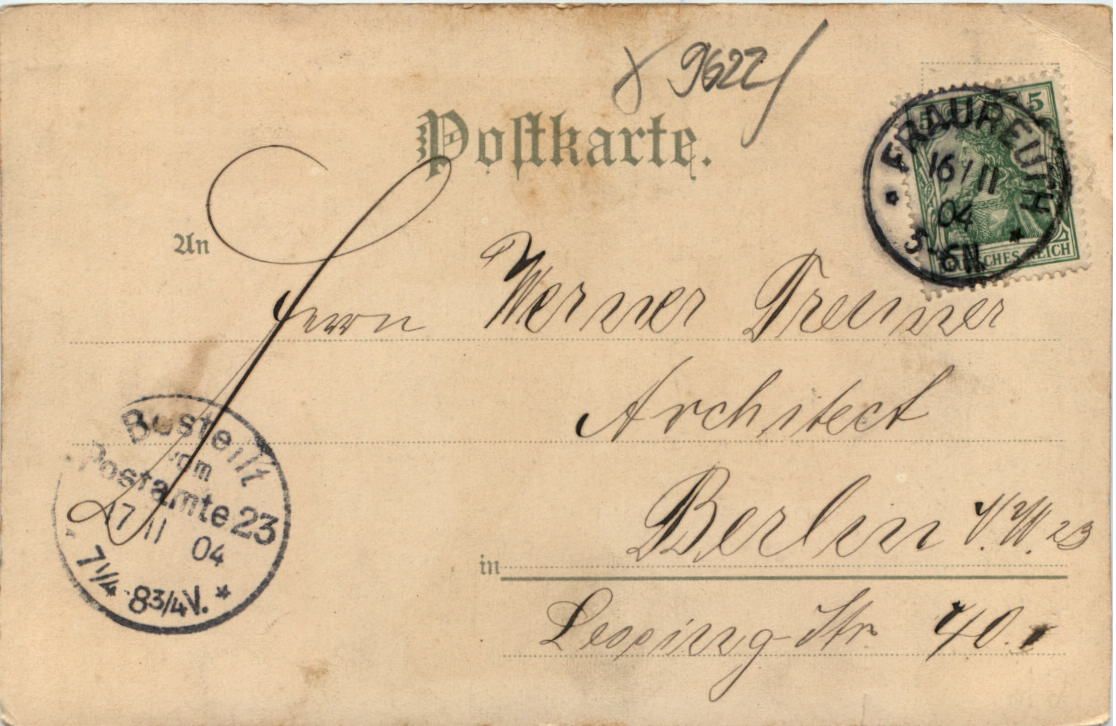 9622
Postkarte.
5
FRAUREUTH
16/11
04
5-6N.
DEUTSCHES REICH
An
Herrn Werner Treuner
Architect
Bestellt
vom
Postamte 23
17/11 04
7 1/4 - 8 3/4 V.
in Berlin N.W. 23
Lessing-Str. 40.